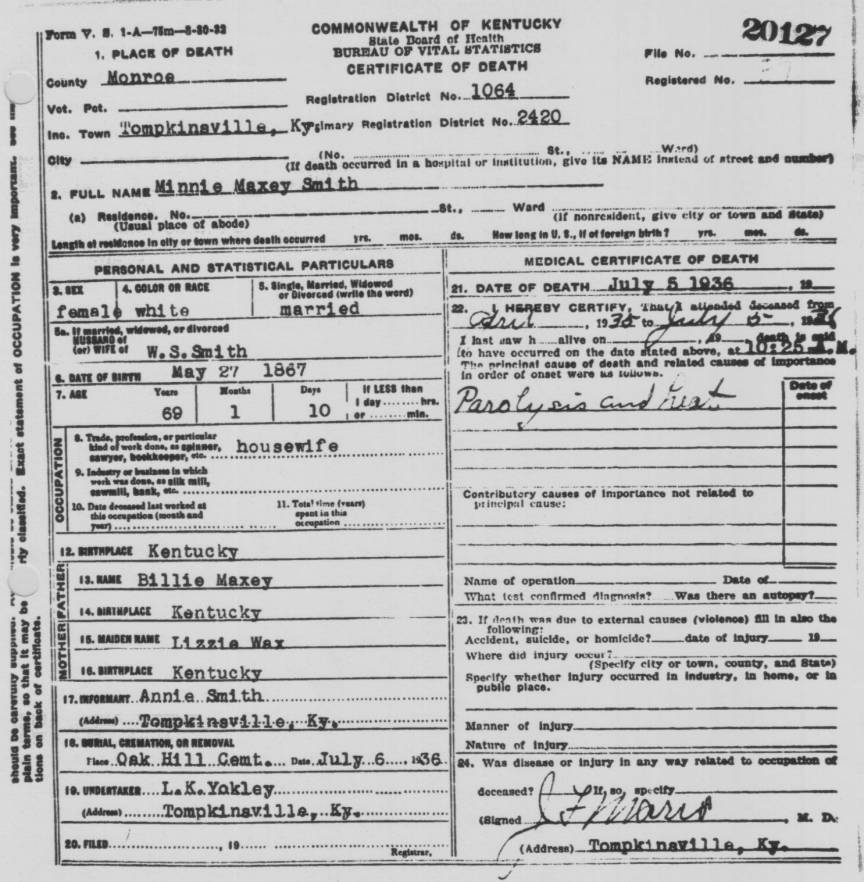 Form V. S. 1-A—75m—8-30-32
COMMONWEALTH OF KENTUCKY
State Board of Health
BUREAU OF VITAL STATISTICS
CERTIFICATE OF DEATH
20127
File No.
Registered No.
1. PLACE OF DEATH
County Monroe
Vot. Pct.
Registration District No. 1064
Inc. Town Tompkinsville, Ky. Primary Registration District No. 2420
City (No. St., Ward)
(If death occurred in a hospital or institution, give its NAME instead of street and number)
2. FULL NAME Minnie Maxey Smith
(a) Residence. No. St., Ward
(Usual place of abode) (If nonresident, give city or town and State)
Length of residence in city or town where death occurred yrs. mos. ds. How long in U. S., if of foreign birth? yrs. mos. ds.
PERSONAL AND STATISTICAL PARTICULARS
3. SEX 4. COLOR OR RACE 5. Single, Married, Widowed
or Divorced (write the word)
female white married
5a. If married, widowed, or divorced
HUSBAND of
(or) WIFE of W.S.Smith
6. DATE OF BIRTH May 27 1867
7. AGE Years Months Days If LESS than
1 day hrs.
69 1 10 or min.
OCCUPATION
8. Trade, profession, or particular
kind of work done, as spinner,
sawyer, bookkeeper, etc. housewife
9. Industry or business in which
work was done, as silk mill,
sawmill, bank, etc.
10. Date deceased last worked at
this occupation (month and
year)
11. Total time (years)
spent in this
occupation
12. BIRTHPLACE Kentucky
FATHER
13. NAME Billie Maxey
14. BIRTHPLACE Kentucky
MOTHER
15. MAIDEN NAME Lizzie Wax
16. BIRTHPLACE Kentucky
17. INFORMANT Annie Smith
(Address) Tompkinsville, Ky.
18. BURIAL, CREMATION, OR REMOVAL
Place Oak Hill Cemt. Date July 6 1936
19. UNDERTAKER L.K.Yokley
(Address) Tompkinsville, Ky.
20. FILED , 19
Registrar.
MEDICAL CERTIFICATE OF DEATH
21. DATE OF DEATH July 5 1936 , 19
22. I HEREBY CERTIFY, That I attended deceased from
April , 1935 to July 5 , 1936
I last saw h alive on , 19 death is said
to have occurred on the date stated above, at 10:25 A.M.
The principal cause of death and related causes of importance
in order of onset were as follows:
Date of
onset
Parolysis and heat
Contributory causes of importance not related to
principal cause:
Name of operation Date of
What test confirmed diagnosis? Was there an autopsy?
23. If death was due to external causes (violence) fill in also the
following:
Accident, suicide, or homicide? date of injury 19
Where did injury occur?
(Specify city or town, county, and State)
Specify whether injury occurred in industry, in home, or in
public place.
Manner of injury
Nature of injury
24. Was disease or injury in any way related to occupation of
deceased? If so, specify
(Signed , M. D.
(Address) Tompkinsville, Ky.
should be carefully supplied.
rly classified. Exact statement of OCCUPATION is very important.
plain terms, so that it may be
tions on back of certificate.